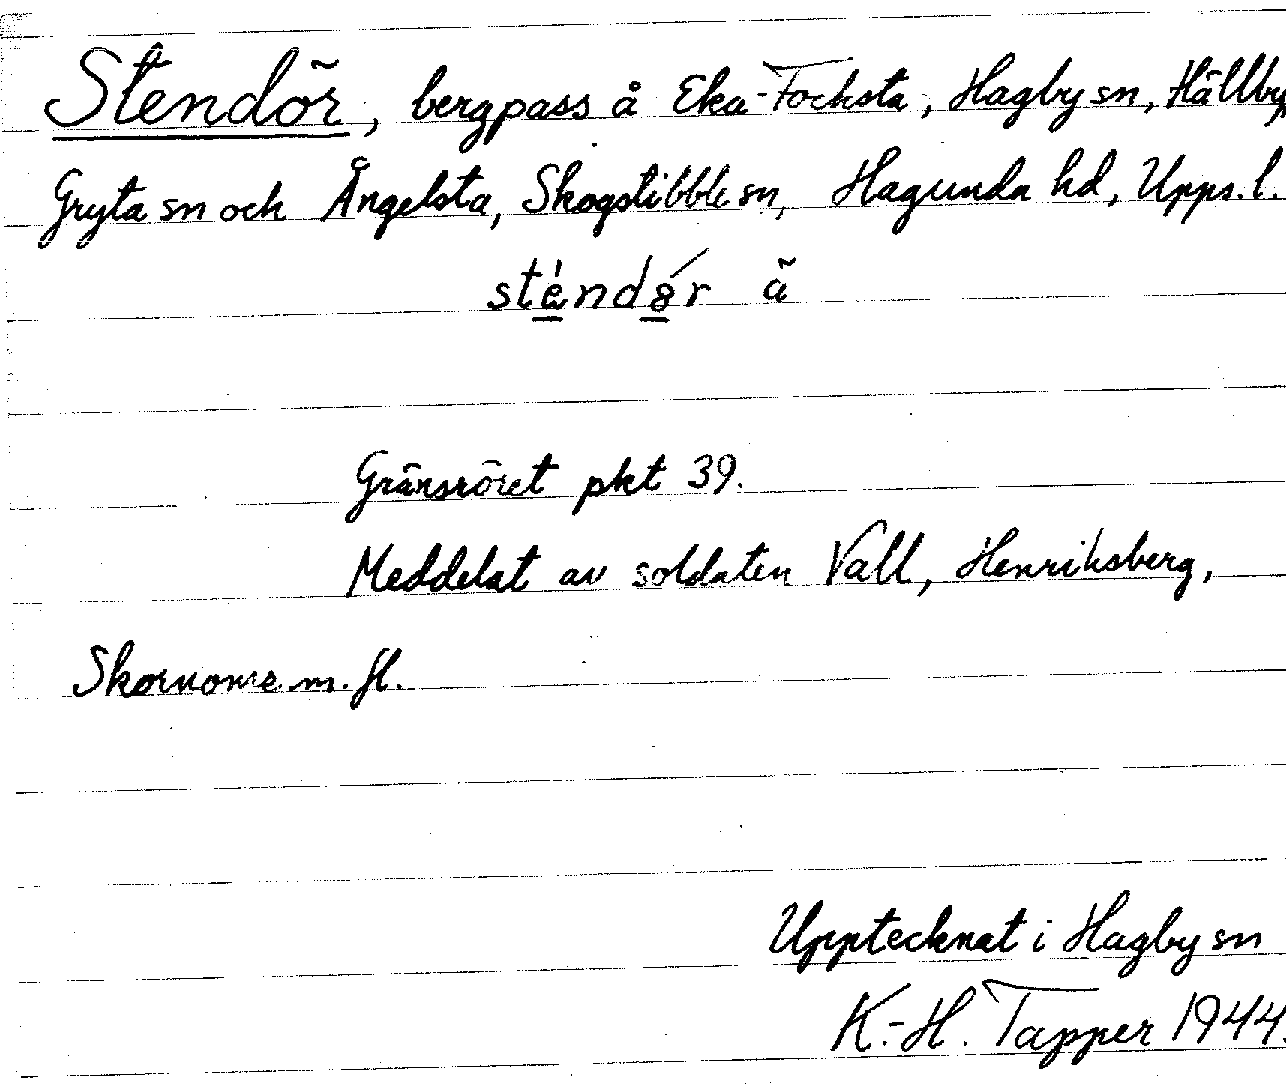 Stendör, bergpass å Eka-Focksta, Hagby sn, Hällby,
Gryta sn och Ängelsta, Skogstibble sn, Hagunda hd, Upps. l.
sténdór ä
Gränsröret pkt 39.
Meddelat av soldaten Vall, Henriksberg,
m. fl.
Upptecknat i Hagby sn
K.-H. Tapper 1944.